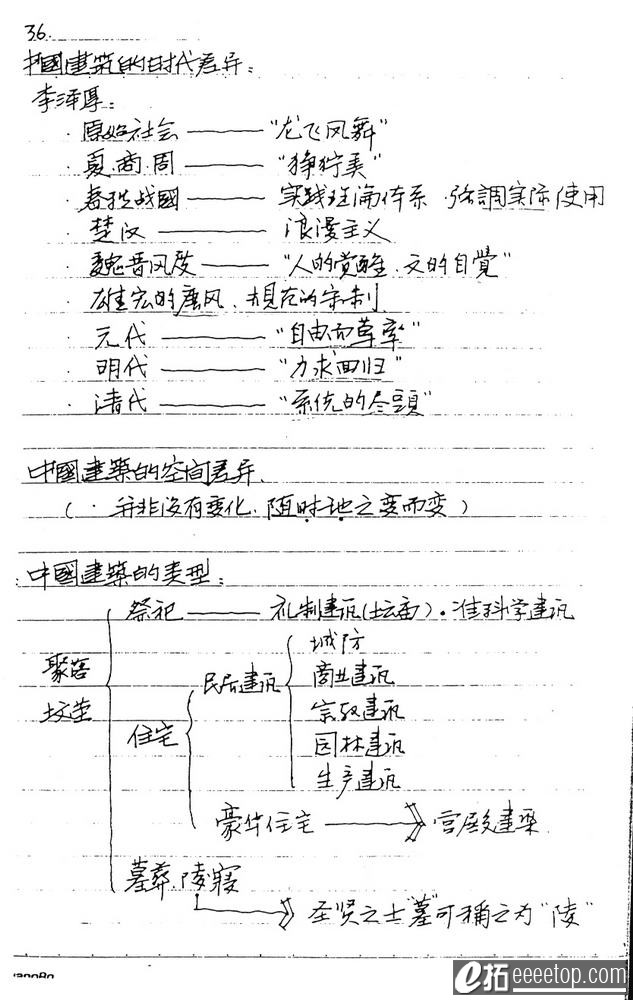 36.
中國建筑的时代差异:
李泽厚:
· 原始社会 —— "龙飞风舞"
· 夏.商.周 —— "狰狞美"
· 春秋战國 —— 实践理淪体系.強調实际使用
· 楚汉 —— 浪漫主义
· 魏晋风度 —— "人的觉醒.文的自覺"
· 雄宏的唐风.規范的宋制.
· 元代 —— "自由而草率"
· 明代 —— "力求回归"
· 清代 —— "系统的尽頭"
中國建築的空间差异.
( · 并非没有变化.随时地之变而变 )
中國建築的类型:
祭祀 —— 礼制建筑(坛庙).准科学建筑
聚落
住宅
民居建筑
城防
商业建筑
宗教建筑
园林建筑
生产建筑
豪华住宅 宫殿建築
墓葬.陵寝
圣贤之士"墓"可稱之为"陵"
e拓 eeeetop.com